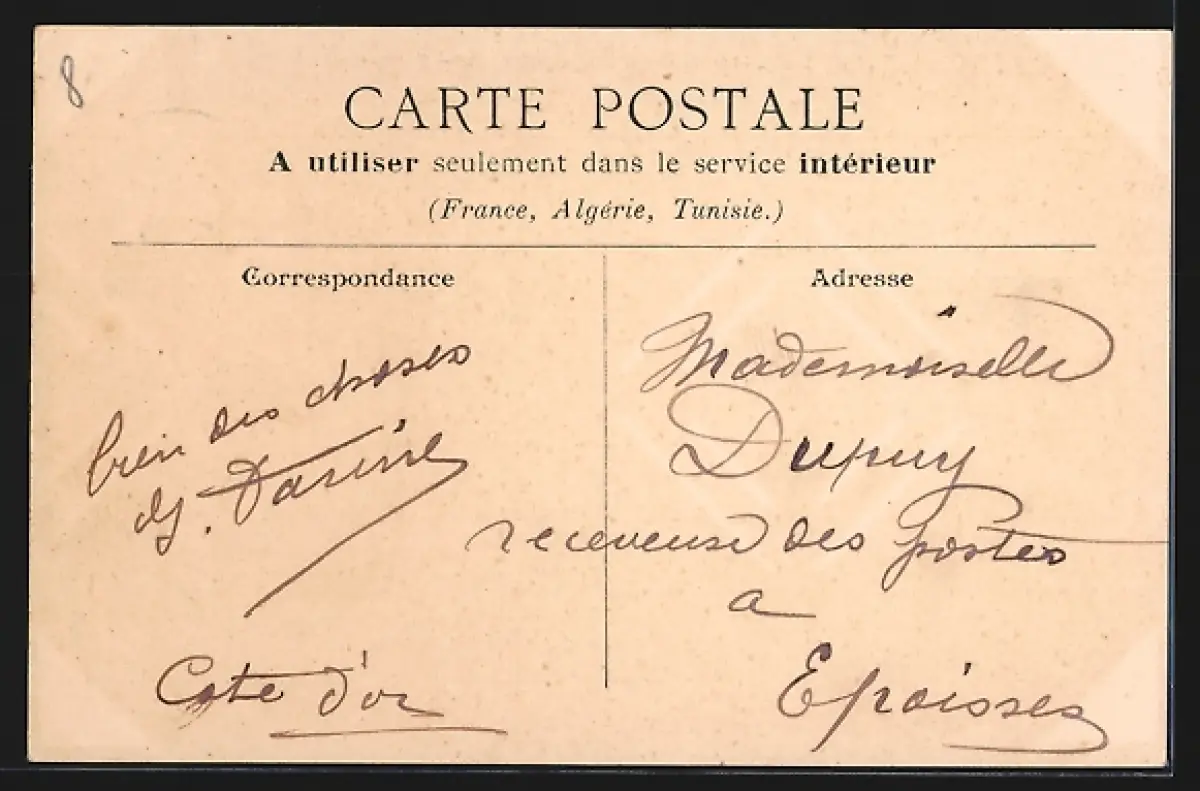 8
CARTE POSTALE
A utiliser seulement dans le service intérieur
(France, Algérie, Tunisie.)
Correspondance
bien des choses
Cote d'or
Adresse
Mademoiselle
Dupuy
receveuse des postes
a
Epoisses